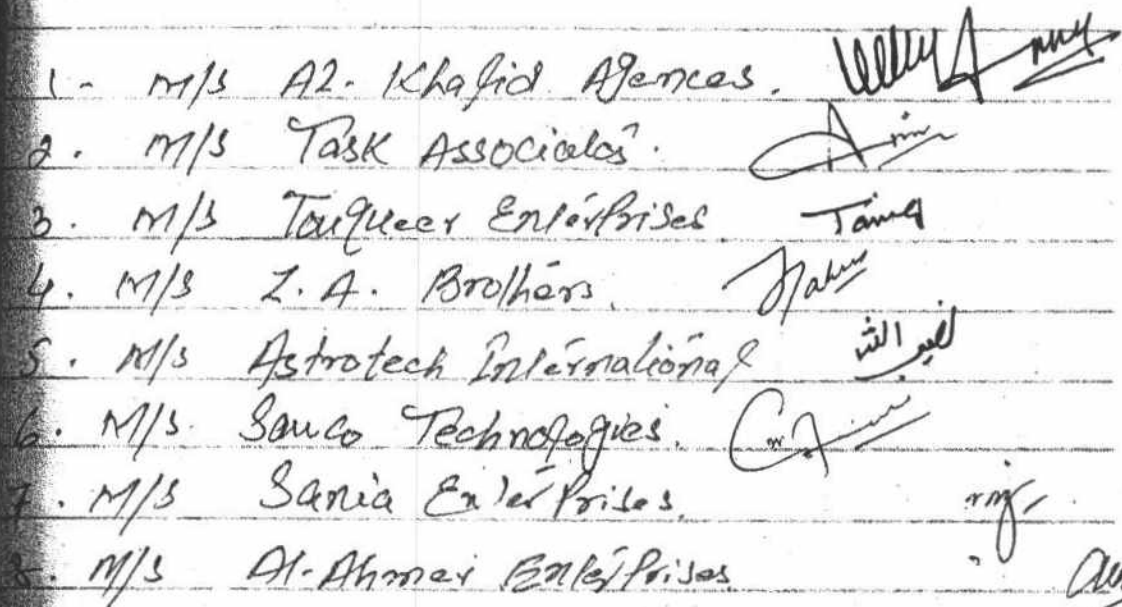 1- M/S Al-Khalid Agences.
2. M/S Task Associates.
3. M/S Tauqueer Enterprises
4. M/S Z.A. Brothers.
5. M/S Astrotech International
6. M/S Sauco Technologies.
7. M/S Sania Enterprises.
8. M/S Al-Ahmer Enterprises